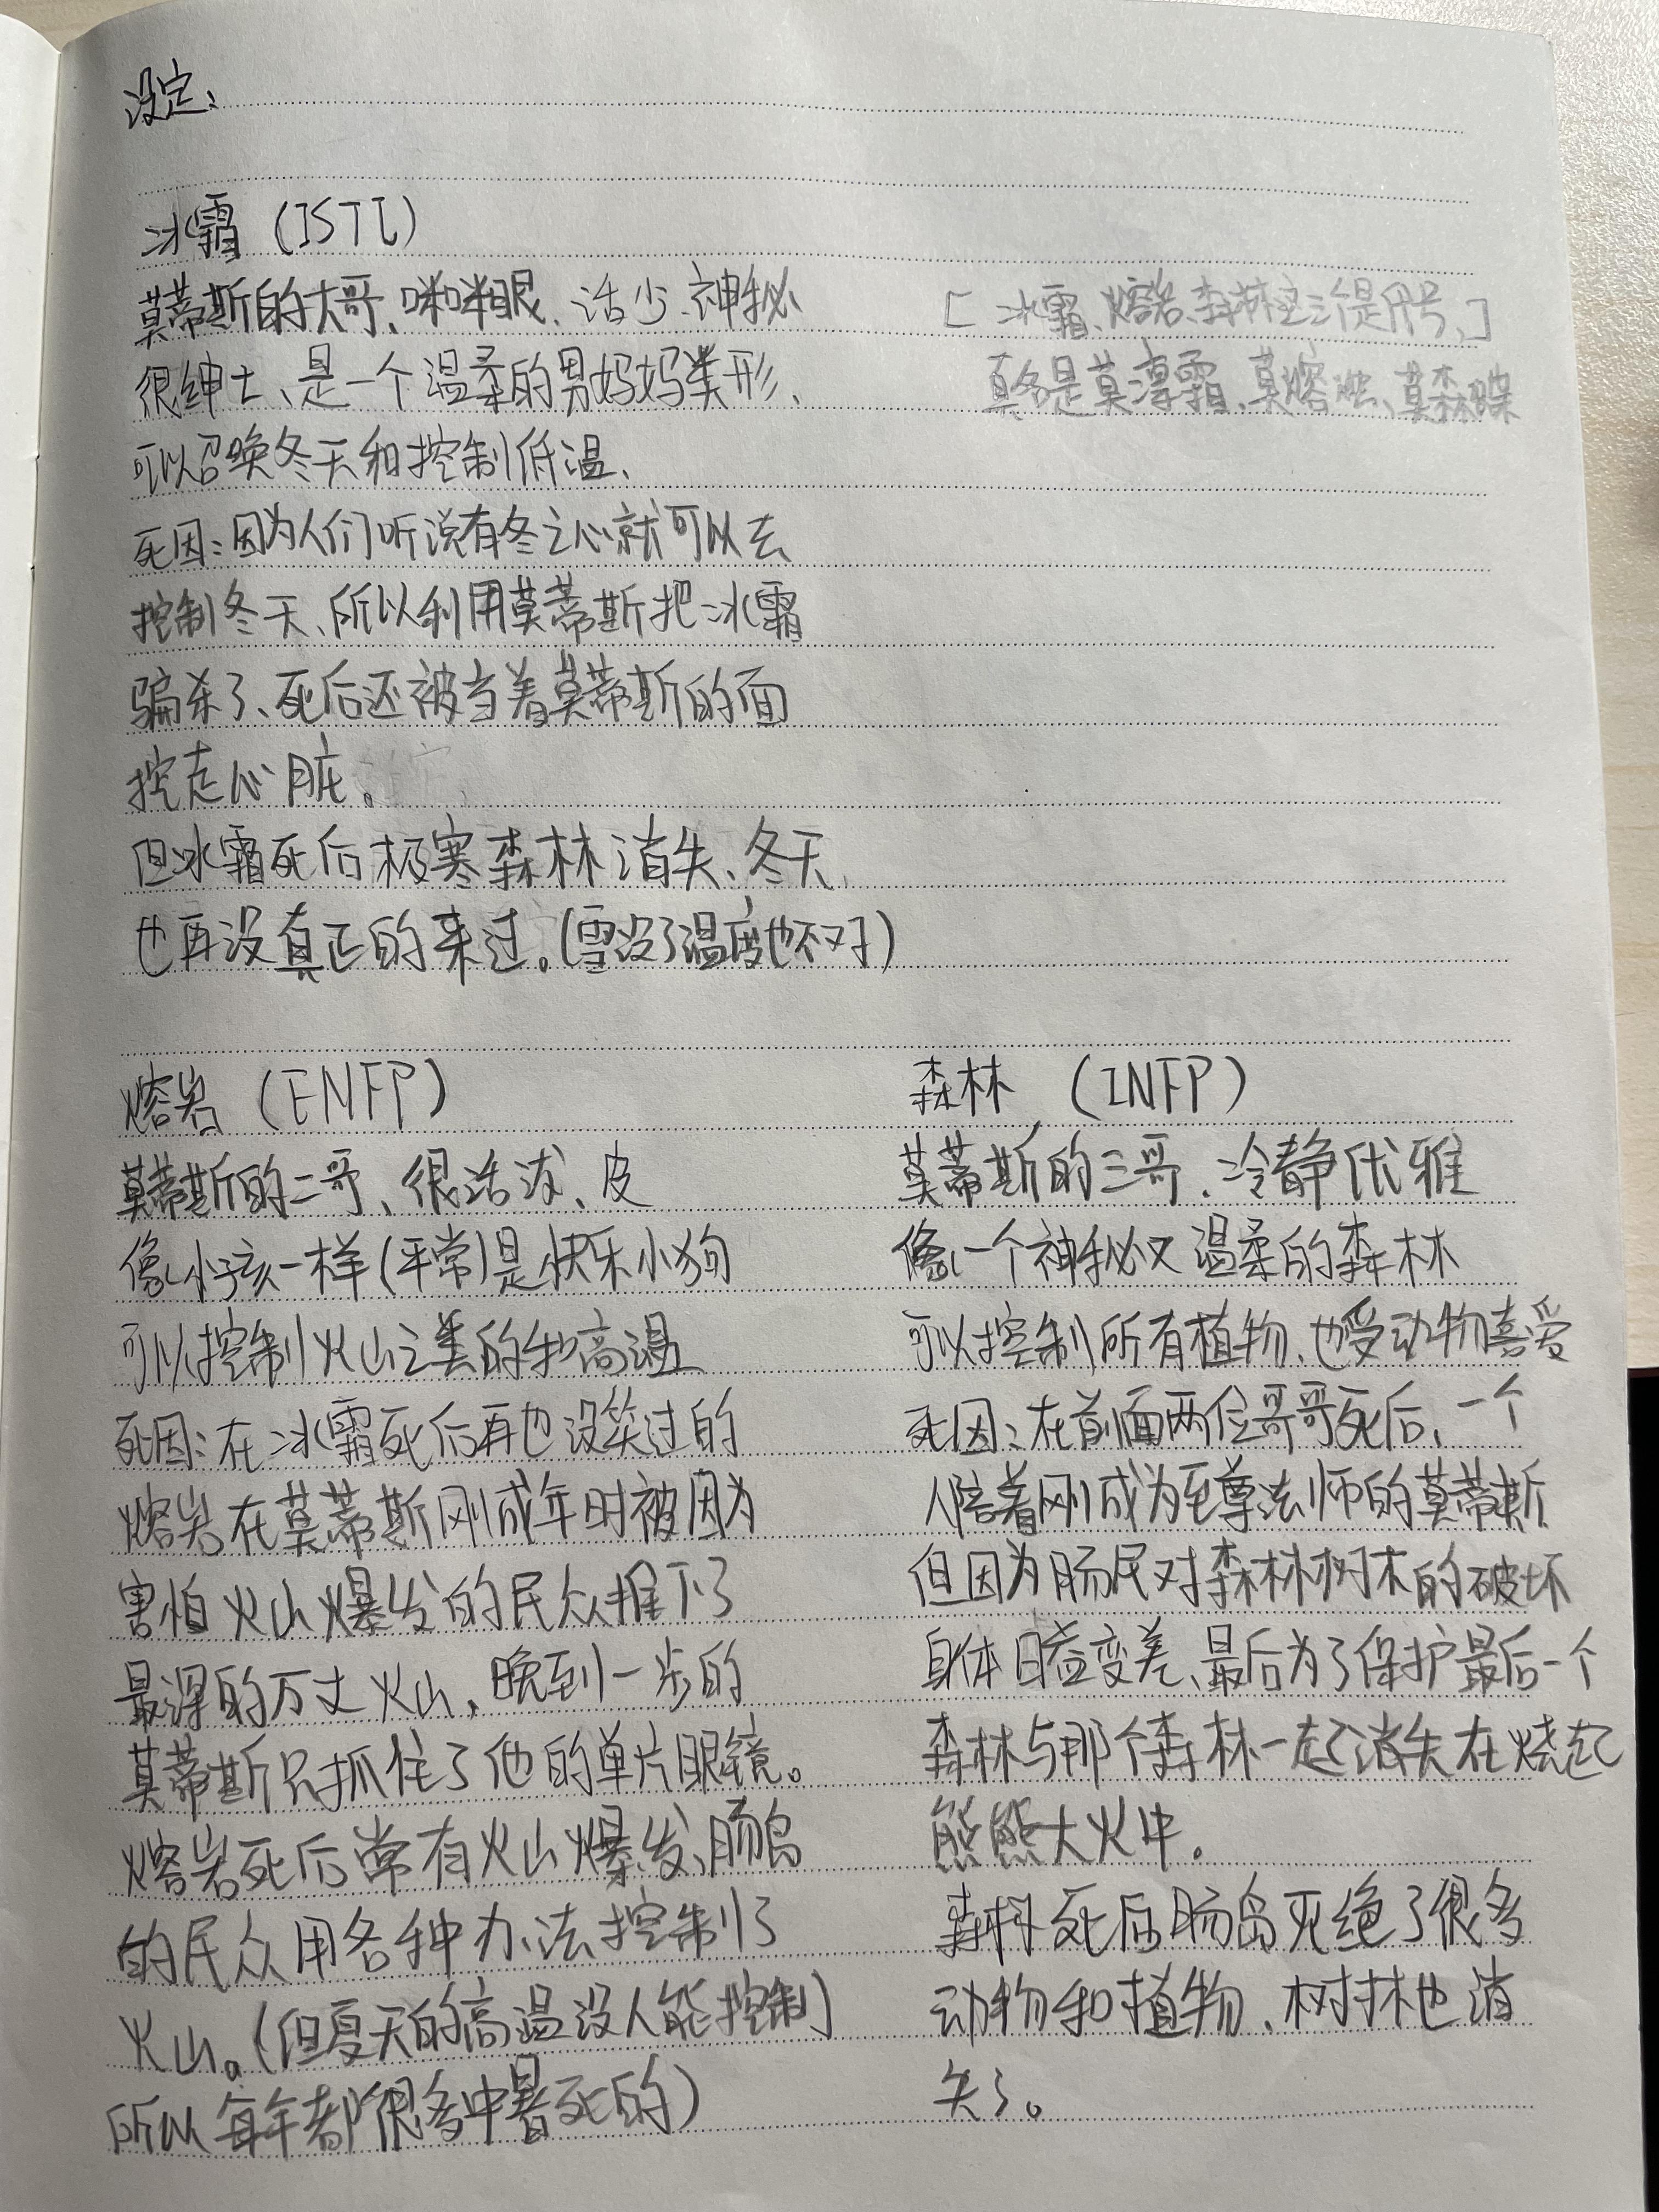 设定:
冰霜 (ISTJ)
莫蒂斯的大哥、咪咪眼、话少、神秘
很绅士、是一个温柔的男妈妈类形、
可以召唤冬天和控制低温、
死因:因为人们听说有冬之心就可以去
控制冬天、所以利用莫蒂斯把冰霜
骗杀了、死后还被当着莫蒂斯的面
挖走心脏。
但冰霜死后极寒森林消失、冬天
也再没真正的来过。(雪没了温度也不对)
[冰霜、熔岩、森林这三个是代号、]
真名是莫凛霜、莫熔烛、莫森
熔岩 (ENFP)
莫蒂斯的二哥、很活泼、皮
像小孩一样(平常)是快乐小狗
可以控制火山之类的和高温
死因:在冰霜死后再也没笑过的
熔岩在莫蒂斯刚成年时被因为
害怕火山爆发的民众推下了
最深的万丈火山,晚到一步的
莫蒂斯只抓住了他的单片眼镜。
熔岩死后常有火山爆发、肠岛
的民众用各种办法控制了
火山。(但夏天的高温没人能控制
所以每年都很多中暑死的)
森林 (INFP)
莫蒂斯的三哥、冷静优雅
像一个神秘又温柔的森林
可以控制所有植物、也受动物喜爱
死因:在前面两位哥哥死后,一个
人陪着刚成为至尊法师的莫蒂斯
但因为肠民对森林树木的破坏
身体日益变差、最后为了保护最后一个
森林与那个森林一起消失在烧起
熊熊大火中。
森林死后肠岛灭绝了很多
动物和植物、树林也消
失了。